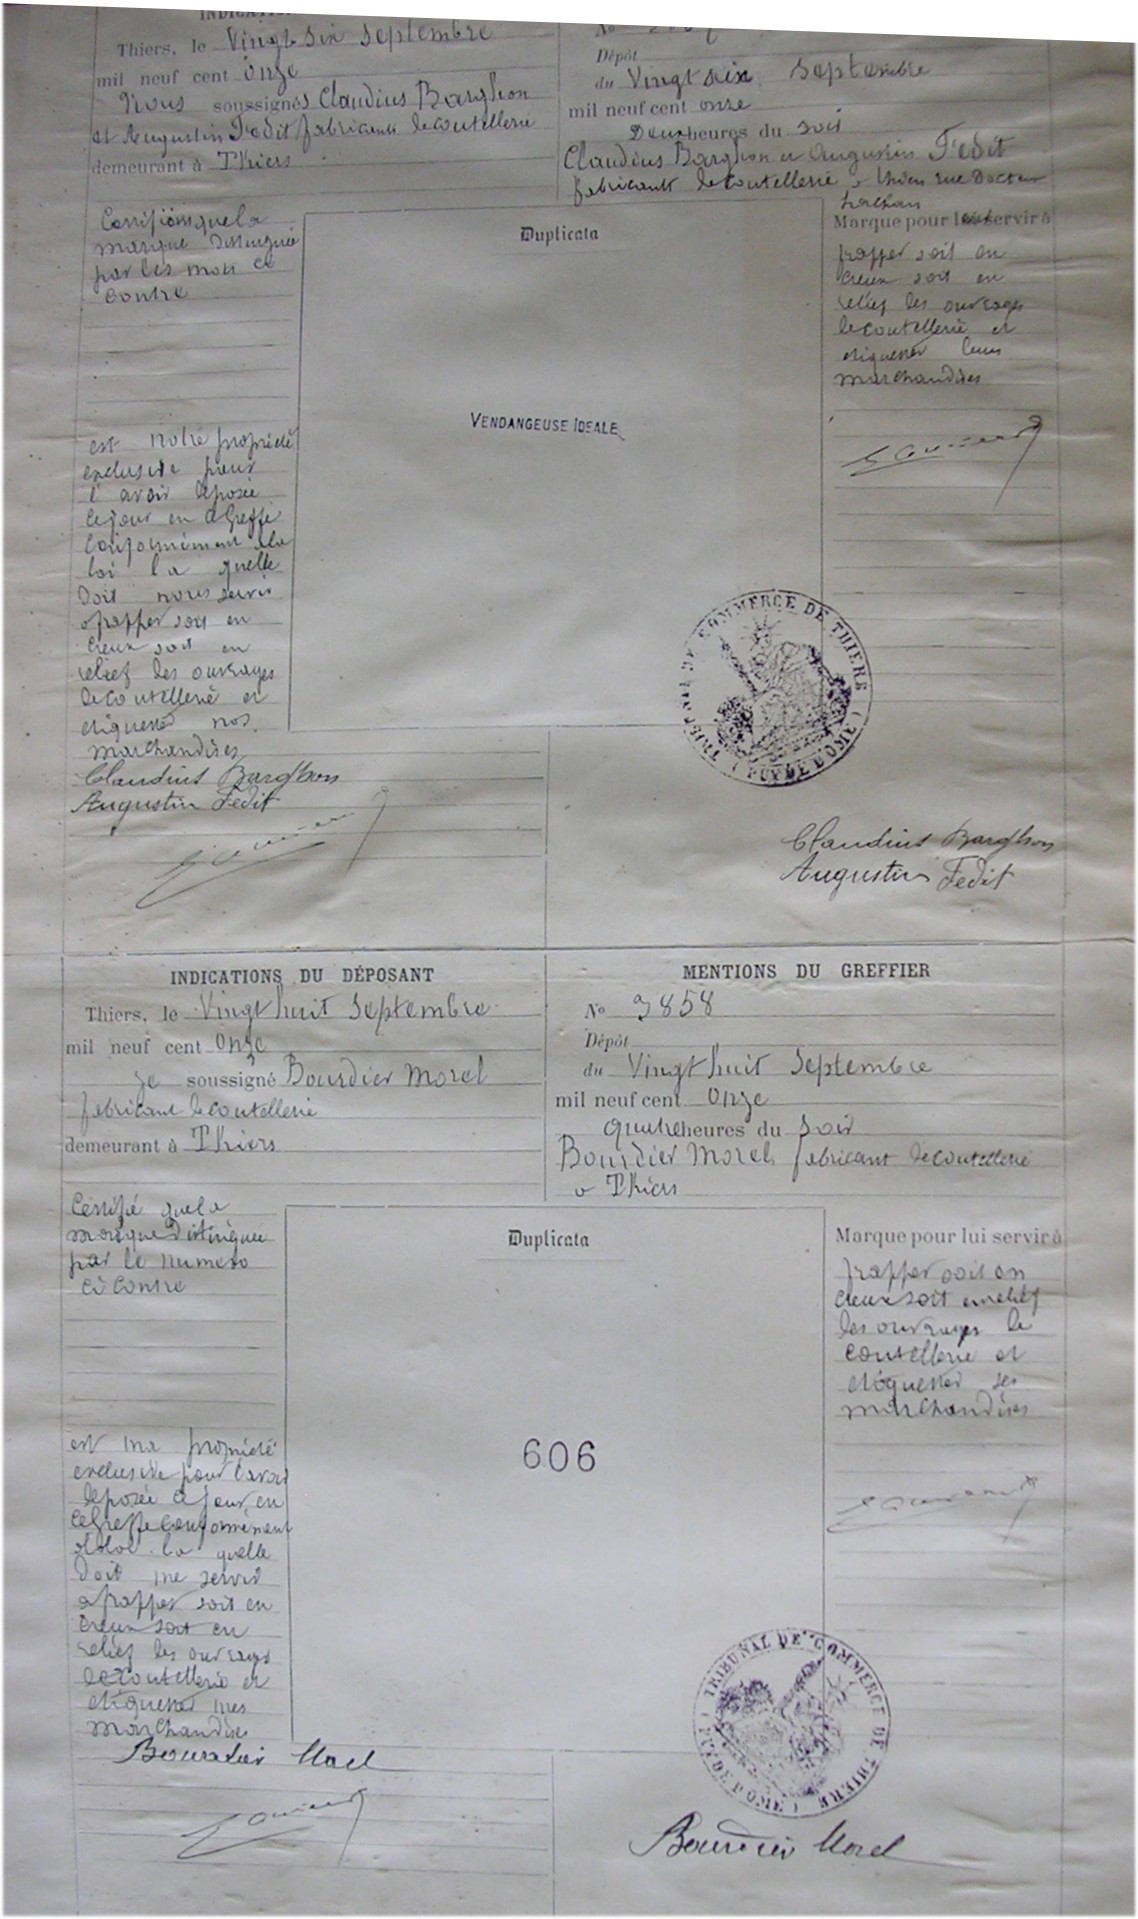 Thiers, le Vingt six Septembre
mil neuf cent Onze
Nous soussignés Claudius Barghon
et Augustin Fédit fabricants de coutellerie
demeurant à Thiers
Dépôt
du Vingt six Septembre
mil neuf cent onze
Deux heures du soir
Claudius Barghon et Augustin Fédit
fabricants de coutellerie a Thiers rue Docteur
Certifions que la
marque Distinguée
par les mots ci
contre
est notre propriété
exclusive pour
l'avoir déposée
ce jour en ce Greffe
Conformément a la
loi la quelle
Doit nous servir
a frapper soit en
creux soit en
relief les ouvrages
de coutellerie et
etiqueter nos
marchandises
Claudius Barghon
Augustin Fédit
Duplicata
VENDANGEUSE IDEALE
Marque pour leur servir à
frapper soit en
creux soit en
relief les ouvrages
de coutellerie et
etiqueter leurs
marchandises
TRIBUNAL DE COMMERCE DE THIERS
(PUY DE DOME)
Claudius Barghon
Augustin Fédit
INDICATIONS DU DÉPOSANT
Thiers, le Vingt huit Septembre
mil neuf cent Onze
Je soussigné Bourdier Morel
fabricant de coutellerie
demeurant à Thiers
MENTIONS DU GREFFIER
No 3858
Dépôt
du Vingt huit Septembre
mil neuf cent Onze
quatre heures du Soir
Bourdier Morel fabricant de coutellerie
a Thiers
Certifié que la
marque Distinguée
par le numero
ci contre
est ma propriété
exclusive pour l'avoir
déposée ce jour en
ce Greffe conformément
a la loi la quelle
Doit me servir
a frapper soit en
creux soit en
relief les ouvrages
de coutellerie et
etiqueter mes
marchandises
Bourdier Morel
Duplicata
606
Marque pour lui servir à
frapper soit en
creux soit en relief
les ouvrages de
coutellerie et
etiqueter ses
marchandises
TRIBUNAL DE COMMERCE DE THIERS
(PUY DE DOME)
Bourdier Morel